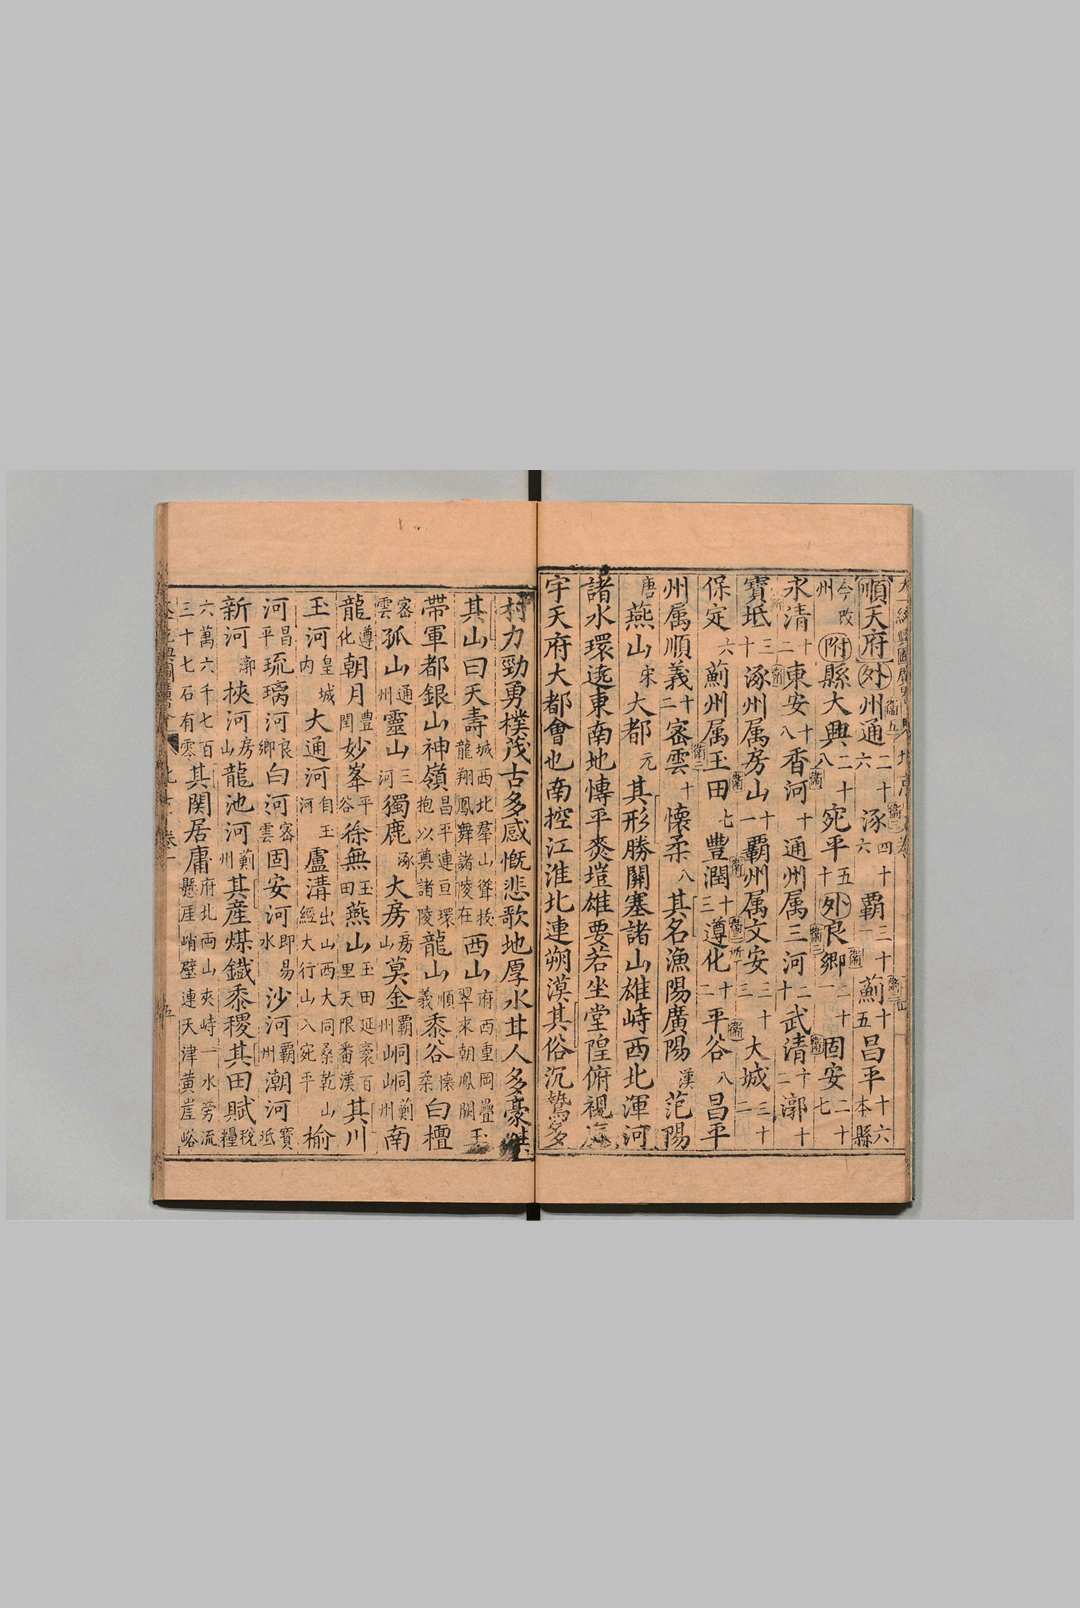 順天府外州通二十六涿四十六覇三十一薊十五昌平十六本縣
今改州附縣大興二十八宛平五十外良鄉十一固安二十七
永清十二東安十八香河十通州属三河二十武清十二漷十
寶坻三十涿州属房山十一覇州属文安二十三大城三十二
保定六薊州属玉田七豐潤十三遵化二平谷八昌平
州属順義十二密雲十懷柔八其名漁陽廣陽漢范陽
唐燕山宋大都元其形勝關塞諸山雄峙西北渾河
諸水環遶東南地慱平爽塏雄要若坐堂隍俯視
宇天府大都會也南控江淮北連朔漠其俗沉鷙多
材力勁勇樸茂古多感慨悲歌地厚水井人多豪傑
其山曰天壽城西北羣山聳拔龍翔鳳舞諸陵在西山府西重岡疊翠來朝鳳闕玉
帶軍都銀山神嶺昌平連亘環抱以奠諸陵龍山順義黍谷懷柔白檀
密雲孤山通州靈山三河獨鹿涿大房房山莫金覇州峒峒薊州南
龍遵化朝月豐閏妙峯平谷徐無玉田燕山玉田延袤百里天限番漢其川
玉河皇城内大通河自玉河盧溝出山西大同桑乾山經大行山入宛平榆
河昌平琉璃河良鄉白河密雲固安河即易水沙河覇州潮河寶坻
新河漷挾河房山龍池河薊州其產煤鐵黍稷其田賦稅糧
六萬六千七百三十七石有零其関居庸府北两山夾峙一水旁流懸崖峭壁連天津黄崖峪